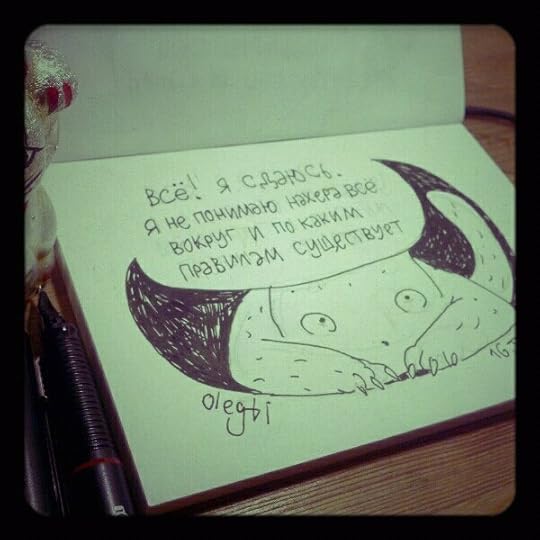 всё! я сдаюсь.
я не понимаю нахера всё
вокруг и по каким
правилам существует
olegti